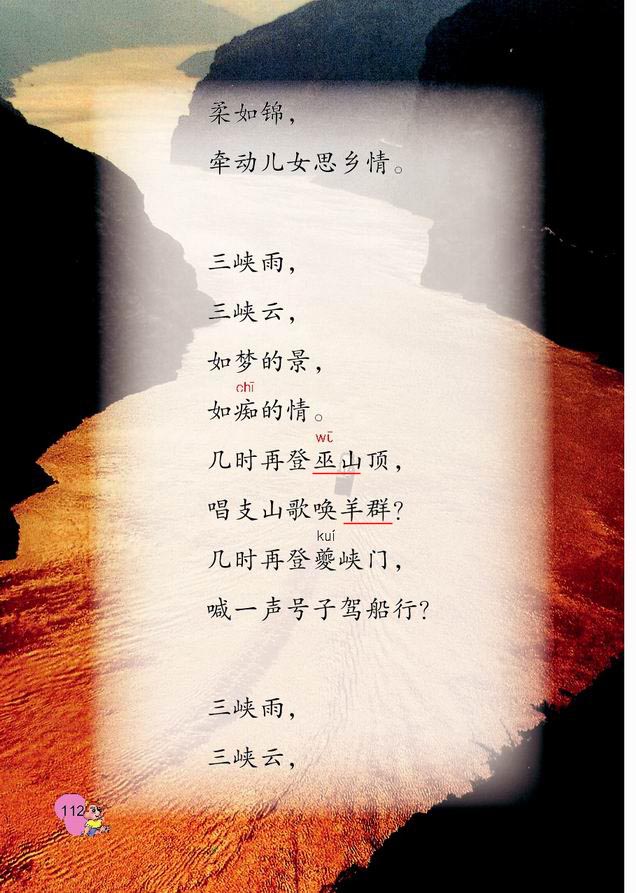 柔如锦，
牵动儿女思乡情。
三峡雨，
三峡云，
如梦的景，
chī
如痴的情。
wū
几时再登巫山顶，
唱支山歌唤羊群？
kuí
几时再登夔峡门，
喊一声号子驾船行？
三峡雨，
三峡云，
112